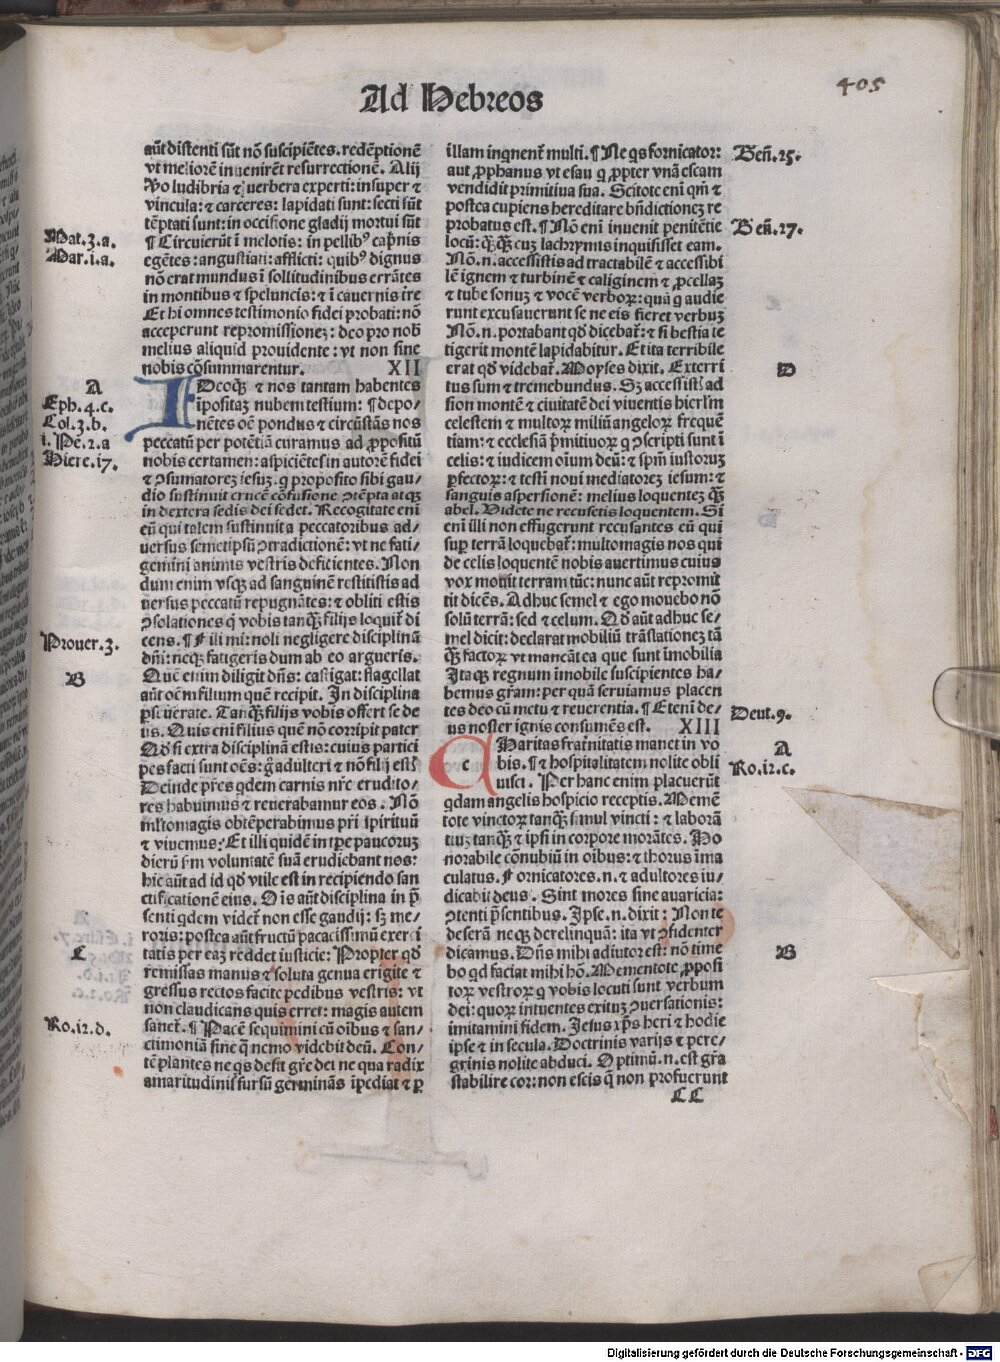 Ad Hebreos
405
aũt distenti sũt nõ suscipiẽtes. redẽptionẽ
vt meliorẽ inuenirẽt resurrectionẽ. Alij
ꝟo ludibria ⁊ verbera experti: insuper ⁊
vincula: ⁊ carceres: lapidati sunt: secti sũt
tẽptati sunt: in occisione gladij mortui sũt
¶ Circuierũt ĩ melotis: in pellibꝰ capnis
egẽtes: angustiati: afflicti: quibꝰ dignus
nõ erat mundus ĩ sollitudinibus errãtes
in montibus ⁊ speluncis: ⁊ ĩ cauernis tre
Et hi omnes testimonio fidei probati: nõ
acceperunt repromissionez: deo pro nob
melius aliquid prouidente: vt non sine
nobis cõsummarentur. XII
IDeoqꝫ ⁊ nos tantam habentes
ĩpositaz nubem testium: ¶ depo-
nẽtes oẽ pondus ⁊ circũstãs nos
peccatũ per potẽtiã curamus ad ꝓpositũ
nobis certamen: aspiciẽtes in autorẽ fidei
⁊ ꝯsumatorez iesuz. q proposito sibi gau/
dio sustinuit crucẽ cõfusione ꝯtẽpta atqꝫ
in dextera sedis dei sedet. Recogitate eni
eũ qui talem sustinuit a peccatoribus ad/
uersus semetipsũ ꝯtradictionẽ: vt ne fati/
gemini animis vestris deficientes. Non
dum enim vsqꝫ ad sanguinẽ restitistis ad
uersus peccatũ repugnãtes: ⁊ obliti estis
ꝯsolationes q̃ vobis tanqꝫ̃ filijs loquit᷑ di
cens. ¶ Fili mi: noli negligere disciplinã
dñi: neqꝫ fatigeris dum ab eo argueris.
Quẽ enim diligit dñs: castigat: flagellat
aũt oẽm filium quẽ recipit. In disciplina
ꝑseuerate. Tanqꝫ̃ filijs vobis offert se de
us. Quis eni filius quẽ nõ corripit pater
Qð si extra disciplinã estis: cuius partici
pes facti sunt oẽs: g̃ adulteri ⁊ nõ filij estꝭ
Deinde pr̃es qdem carnis nr̃e erudito/
res habuimus ⁊ reuerabamur eos. Nõ
mltomagis obtẽperabimus pr̃i spirituũ
⁊ viuemus: Et illi quidẽ in tꝑe paucoruz
dierũ ẜm voluntatẽ suã erudiebant nos:
hic aũt ad id qð vtile est in recipiendo san
ctificationẽ eius. Ois aũt disciplina in p̃
senti qdem videt᷑ non esse gaudij: sꝫ me/
roris: postea aũt fructũ pacatissimũ exerci
tatis per eaz reddet iusticie: Propter qð
remissas manus ⁊ soluta genua erigite ⁊
gressus rectos facite pedibus vestris: vt
non claudicans quis erret: magis autem
sanet᷑. ¶ Pacẽ sequimini cũ oibus ⁊ san/
ctimoniã sine q̃ nemo videbit deũ. Con/
tẽplantes ne qs desit gr̃e dei ne qua radix
amaritudinis sursũ germinãs ĩpediat ⁊ ꝑ
Mat. 3. a.
Mar. i. a.
A
Eph. 4. c.
Col. 3. b.
i. Pe. 2. a
Hiere. i7.
Prouer. 3.
B
C
Ro. i2. d.
illam inqnent᷑ multi. ¶ Ne qs fornicator:
aut ꝓphanus vt esau q ꝓpter vnã escam
vendidit primitiua sua. Scitote eni qm̃ ⁊
postea cupiens hereditare bñdictionez re
probatus est. ¶ Nõ eni inuenit penitẽtie
locũ: qꝫ̃qꝫ̃ cuz lachrymis inquisisset eam.
Nõ. n. accessistis ad tractabilẽ ⁊ accessibi
lẽ ignem ⁊ turbinẽ ⁊ caliginem ⁊ ꝓcellaz
⁊ tube sonuz ⁊ vocẽ verboꝝ: quã q audie
runt excusauerunt se ne eis fieret verbuz
Nõ. n. portabant qð dicebat᷑: ⁊ si bestia te
tigerit montẽ lapidabitur. Et ita terribile
erat qð videbat᷑. Moyses dixit. Exterri
tus sum ⁊ tremebundus. Sꝫ accessistꝭ ad
sion montẽ ⁊ ciuitatẽ dei viuentis hierl̃m
celestem ⁊ multoꝝ miliũ angeloꝝ frequẽ
tiam: ⁊ ecclesiã p̃mitiuoꝝ q ꝯscripti sunt ĩ
celis: ⁊ iudicem oĩum deũ: ⁊ spm̃ iustoruz
ꝑfectoꝝ: ⁊ testi noui mediatorez iesum: ⁊
sanguis aspersionẽ: melius loquentez qꝫ̃
abel. Videte ne recusetis loquentem. Si
eni illi non effugerunt recusantes eũ qui
suꝑ terrã loquebat᷑: multomagis nos qui
de celis loquentẽ nobis auertimus cuius
vox mouit terram tũc: nunc aũt repromit
tit dicẽs. Adhuc semel ⁊ ego mouebo nõ
solũ terrã: sed ⁊ celum. Qð aũt adhuc se/
mel dicit: declarat mobiliũ trãslationez tã
qꝫ̃ factoꝝ vt maneãt ea que sunt ĩmobilia
Itaqꝫ regnum ĩmobile suscipientes ha/
bemus gr̃am: per quã seruiamus placen
tes deo cũ metu ⁊ reuerentia. ¶ Eteni de/
us noster ignis consumẽs est. XIII
CHaritas frat᷑nitatis manet in vo
bis. ¶ ⁊ hospitalitatem nolite obli
uisci. Per hanc enim placuerũt
qdam angelis hospicio receptis. Memẽ
tote vinctoꝝ tanqꝫ̃ simul vincti: ⁊ laborã
tiuz tanqꝫ̃ ⁊ ipsi in corpore morãtes. Ho
norabile cõnubiũ in oibus: ⁊ thorus ĩma
culatus. Fornicatores. n. ⁊ adultores iu/
dicabit deus. Sint mores sine auaricia:
ꝯtenti p̃sentibus. Ipse. n. dixit: Non te
deserã neqꝫ derelinquã: ita vt ꝯfidenter
dicamus. Dñs mihi adiutor est: nõ time
bo qd faciat mihi hõ. Mementote ꝓposi
toꝝ vestroꝝ q vobis locuti sunt verbum
dei: quoꝝ intuentes exituz ꝯuersationis:
imitamini fidem. Jesus xp̃s heri ⁊ hodie
ipse ⁊ in secula. Doctrinis varijs ⁊ pere/
grinis nolite abduci. Optimũ. n. est gr̃a
stabilire cor: non escis q̃ non profuerunt
CC
Geñ. 25.
Geñ. 27.
D
Deut. 9.
A
Ro. i2. c.
B
Digitalisierung gefördert durch die Deutsche Forschungsgemeinschaft - DFG